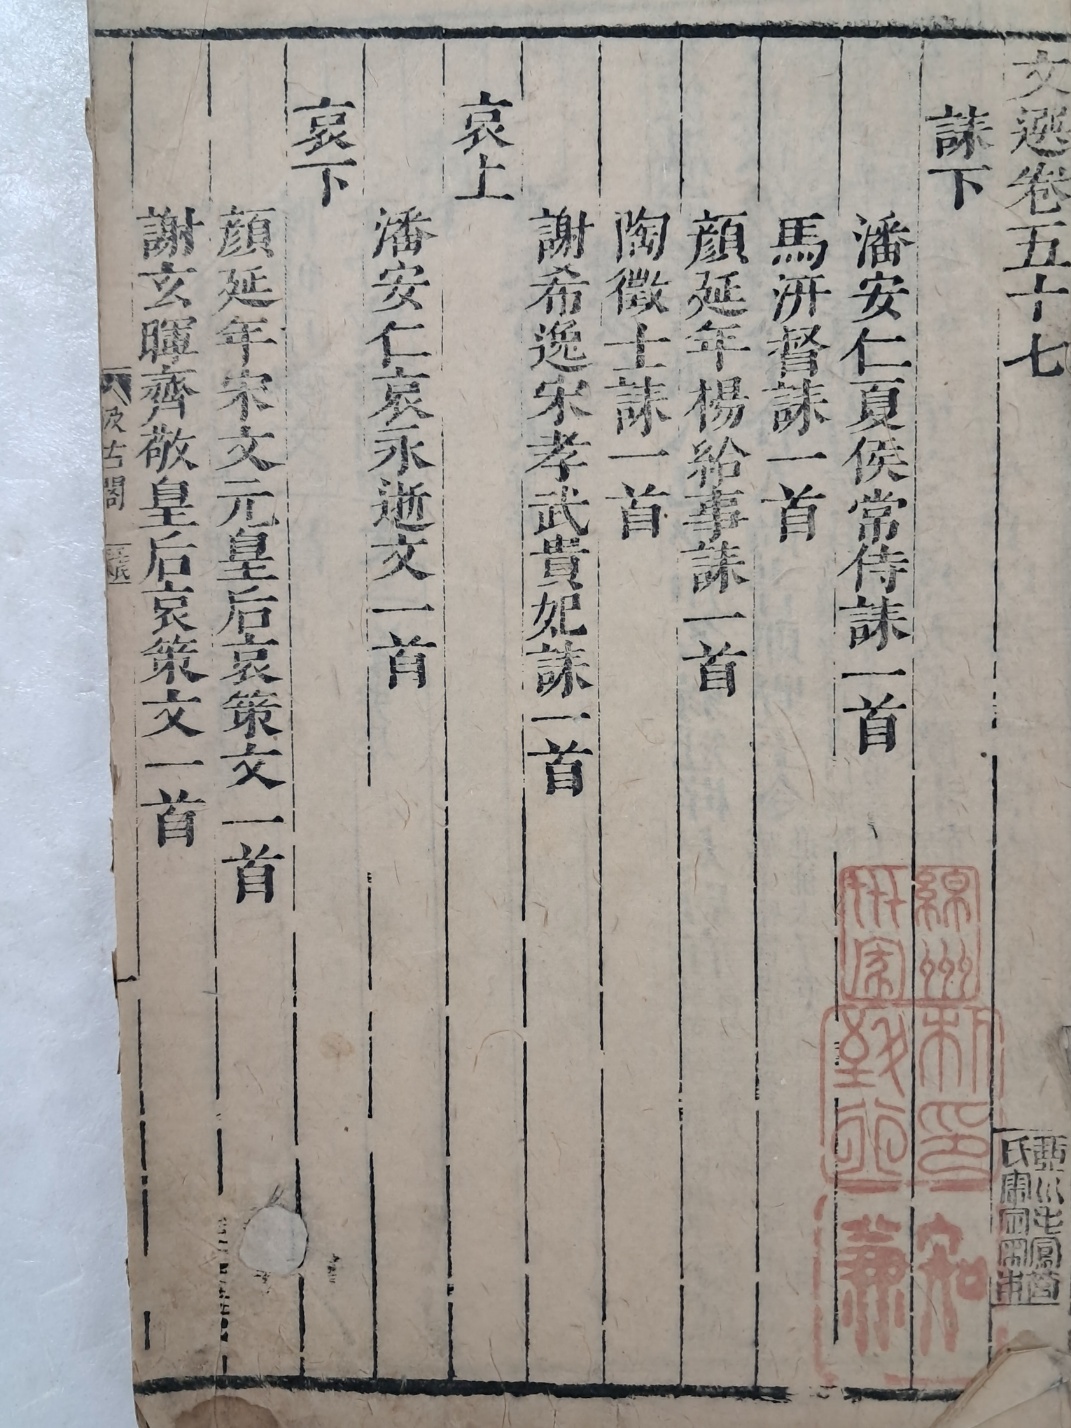 文選卷五十七
誄下
潘安仁夏侯常侍誄一首
馬汧督誄一首
顏延年楊給事誄一首
陶徵士誄一首
謝希逸宋孝武貴妃誄一首
哀上
潘安仁哀永逝文一首
哀下
顏延年宋文元皇后哀策文一首
謝玄暉齊敬皇后哀策文一首
汲古閣